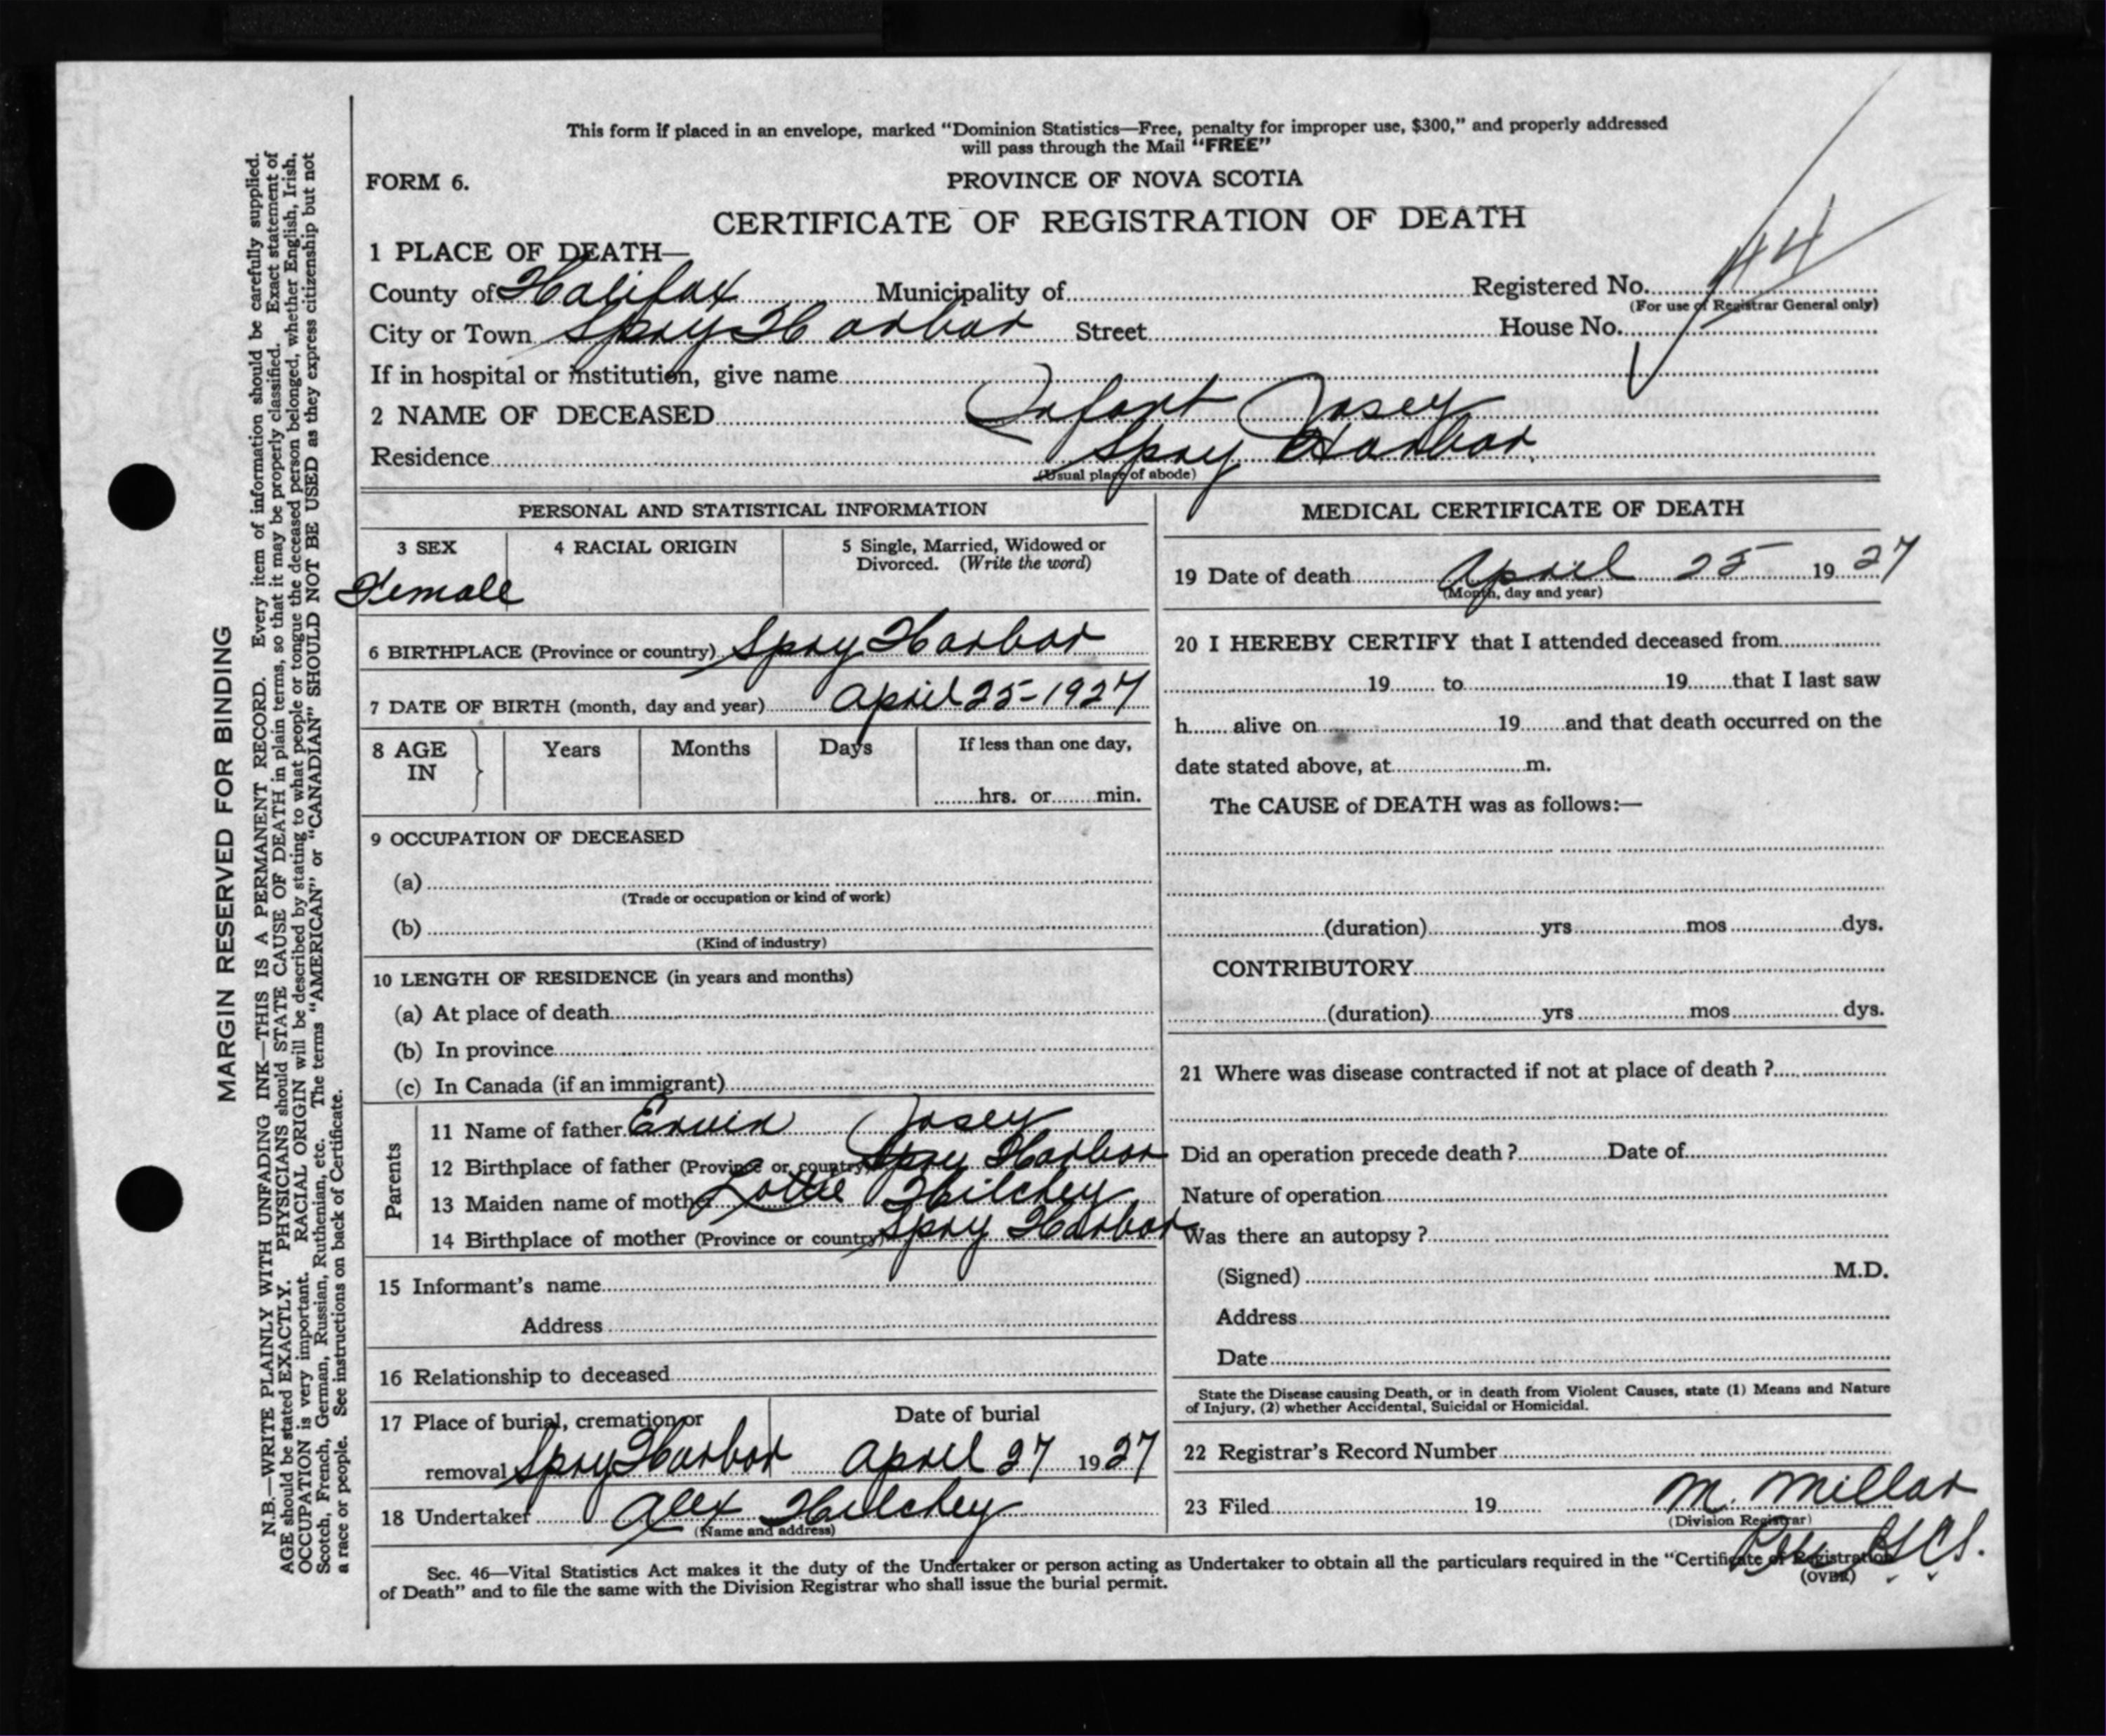 This form if placed in an envelope, marked “Dominion Statistics—Free, penalty for improper use, $300,” and properly addressed
will pass through the Mail “FREE”
FORM 6.
PROVINCE OF NOVA SCOTIA
CERTIFICATE OF REGISTRATION OF DEATH
1 PLACE OF DEATH—
County of Halifax Municipality of Registered No. 44
(For use of Registrar General only)
City or Town Spry Harbor Street House No.
If in hospital or institution, give name
2 NAME OF DECEASED Infant Josey
Residence Spry Harbor.
(Usual place of abode)
PERSONAL AND STATISTICAL INFORMATION
3 SEX 4 RACIAL ORIGIN 5 Single, Married, Widowed or
Divorced. (Write the word)
Female
6 BIRTHPLACE (Province or country) Spry Harbor
7 DATE OF BIRTH (month, day and year) April 25-1927
8 AGE Years Months Days If less than one day,
IN
hrs. or min.
9 OCCUPATION OF DECEASED
(a)
(Trade or occupation or kind of work)
(b)
(Kind of industry)
10 LENGTH OF RESIDENCE (in years and months)
(a) At place of death
(b) In province
(c) In Canada (if an immigrant)
Parents
11 Name of father Ervin Josey
12 Birthplace of father (Province or country) Spry Harbor
13 Maiden name of mother Lottie Hilchey
14 Birthplace of mother (Province or country) Spry Harbor
15 Informant's name
Address
16 Relationship to deceased
17 Place of burial, cremation or Date of burial
removal Spry Harbor April 27 1927
18 Undertaker Alex Hilchey
(Name and address)
MEDICAL CERTIFICATE OF DEATH
19 Date of death April 25 1927
(Month, day and year)
20 I HEREBY CERTIFY that I attended deceased from
19 to 19 that I last saw
h alive on 19 and that death occurred on the
date stated above, at m.
The CAUSE of DEATH was as follows:—
(duration) yrs mos dys.
CONTRIBUTORY
(duration) yrs mos dys.
21 Where was disease contracted if not at place of death ?
Did an operation precede death ? Date of
Nature of operation
Was there an autopsy ?
(Signed) M.D.
Address
Date
State the Disease causing Death, or in death from Violent Causes, state (1) Means and Nature
of Injury, (2) whether Accidental, Suicidal or Homicidal.
22 Registrar's Record Number
23 Filed 19 M. Millar
(Division Registrar)
Sec. 46—Vital Statistics Act makes it the duty of the Undertaker or person acting as Undertaker to obtain all the particulars required in the “Certificate of Registration
of Death” and to file the same with the Division Registrar who shall issue the burial permit.
(OVER)
MARGIN RESERVED FOR BINDING
N.B.—WRITE PLAINLY WITH UNFADING INK—THIS IS A PERMANENT RECORD. Every item of information should be carefully supplied.
AGE should be stated EXACTLY. PHYSICIANS should STATE CAUSE OF DEATH in plain terms, so that it may be properly classified. Exact statement of
OCCUPATION is very important. RACIAL ORIGIN will be described by stating to what people or tongue the deceased person belonged, whether English, Irish,
Scotch, French, German, Russian, Ruthenian, etc. The terms “AMERICAN” or “CANADIAN” SHOULD NOT BE USED as they express citizenship but not
a race or people. See instructions on back of Certificate.